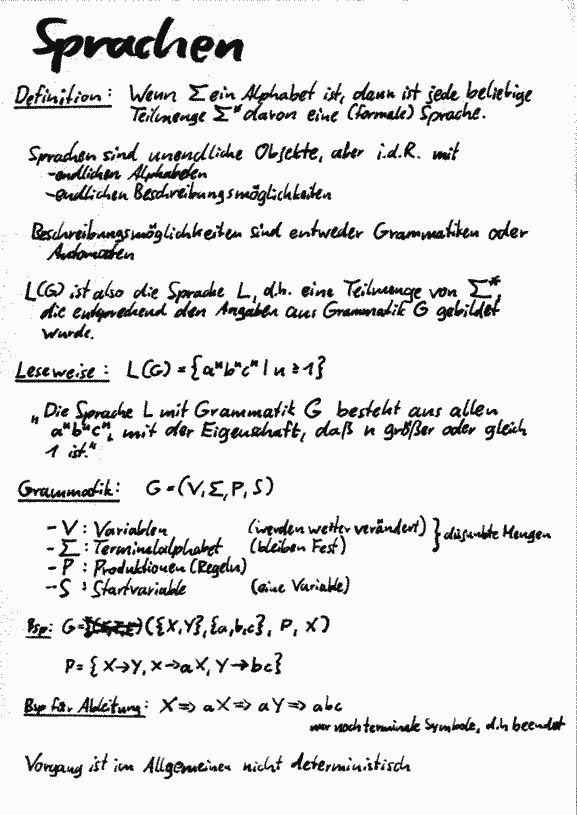 Sprachen
Definition: Wenn Σ ein Alphabet ist, dann ist jede beliebige
Teilmenge Σ* davon eine (formale) Sprache.
Sprachen sind unendliche Objekte, aber i.d.R. mit
-endlichen Alphabeten
-endlichen Beschreibungsmöglichkeiten
Beschreibungsmöglichkeiten sind entweder Grammatiken oder
Automaten
L(G) ist also die Sprache L, d.h. eine Teilmenge von Σ*
die entsprechend den Angaben aus Grammatik G gebildet
wurde.
Leseweise: L(G) = {aⁿbⁿcⁿ | n ≥ 1}
„Die Sprache L mit Grammatik G besteht aus allen
aⁿbⁿcⁿ, mit der Eigenschaft, daß n größer oder gleich
1 ist."
Grammatik: G = (V, Σ, P, S)
- V : Variablen (werden weiter verändert)
- Σ : Terminalalphabet (bleiben Fest) } disjunkte Mengen
- P : Produktionen (Regeln)
- S : Startvariable (eine Variable)
Bsp: G = ({X,Y},{a,b,c}, P, X)
P = {X→Y, X→aX, Y→bc}
Bsp für Ableitung: X ⇒ aX ⇒ aY ⇒ abc
nur noch terminale Symbole, d.h beendet
Vorgang ist im Allgemeinen nicht deterministisch